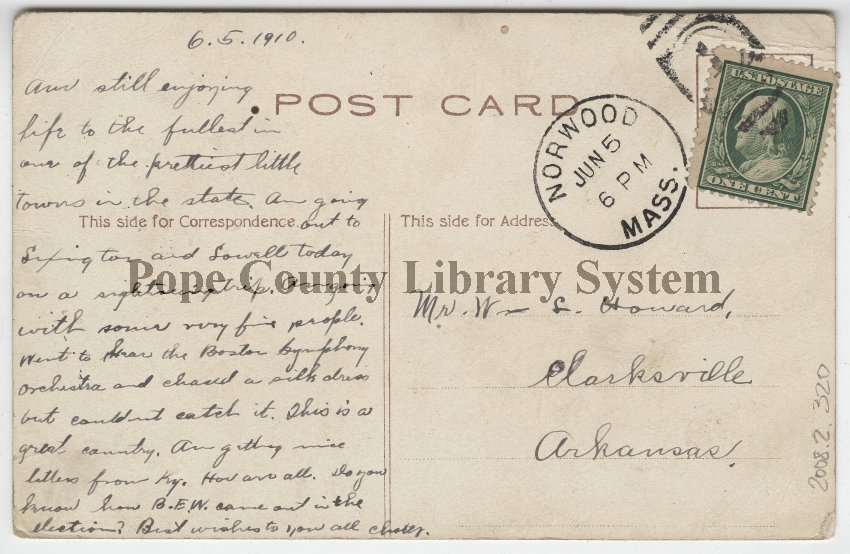 6.5.1910.
POST CARD
Am still enjoying
life to the fullest in
one of the prettiest little
towns in the state. Am going
out to
Lexington and Lowell today
on a sightseeing trip. Am going
with some very fine people.
Went to hear the Boston Symphony
orchestra and chased a silk dress
but couldnt catch it. This is a
great country. Am getting nice
letters from Ky. How are all. Do you
know how B.E.W. came out in the
election? Best wishes to you all
This side for Correspondence.
This side for Address.
NORWOOD
JUN 5
6 PM
MASS.
U.S. POSTAGE
ONE CENT
Mr. W L. Howard,
Clarksville
Arkansas.
2008.2.320
Pope County Library System